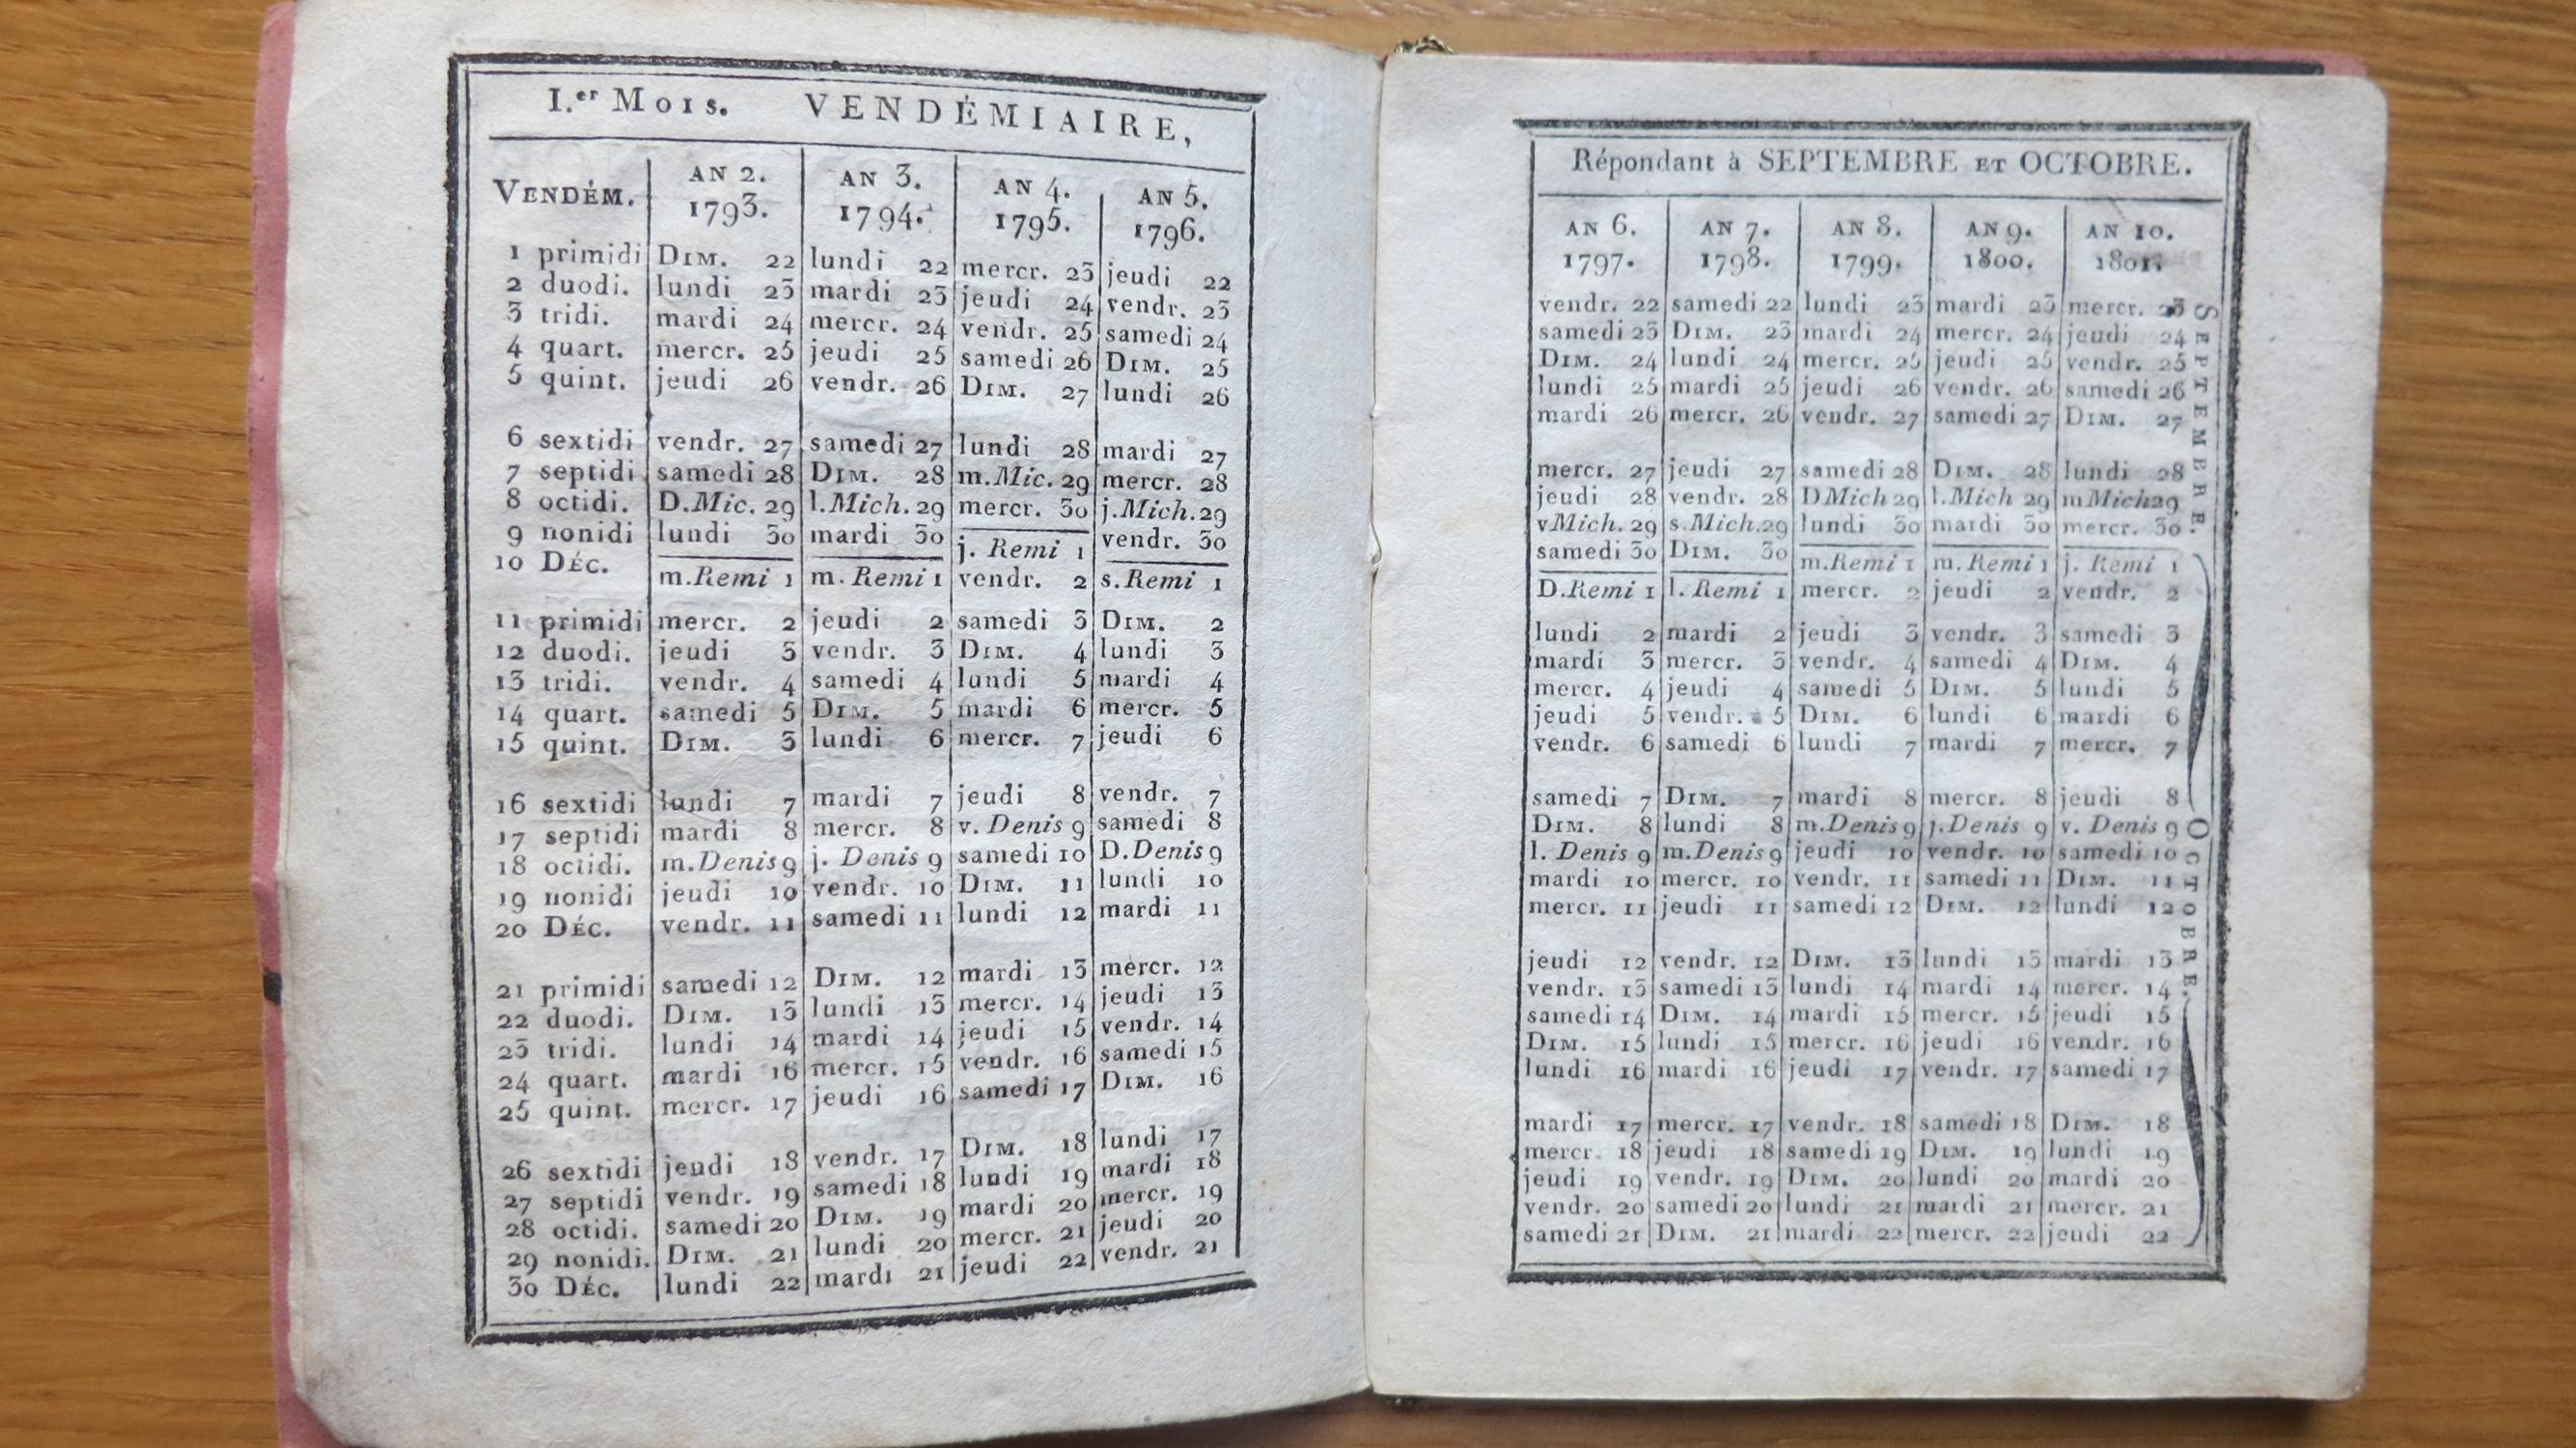 I.er Mois. VENDÉMIAIRE,
VENDÉM. AN 2. 1793. AN 3. 1794. AN 4. 1795. AN 5. 1796.
1 primidi DIM. 22 lundi 22 mercr. 23 jeudi 22
2 duodi. lundi 23 mardi 23 jeudi 24 vendr. 23
3 tridi. mardi 24 mercr. 24 vendr. 25 samedi 24
4 quart. mercr. 25 jeudi 25 samedi 26 DIM. 25
5 quint. jeudi 26 vendr. 26 DIM. 27 lundi 26
6 sextidi vendr. 27 samedi 27 lundi 28 mardi 27
7 septidi samedi 28 DIM. 28 m.Mic. 29 mercr. 28
8 octidi. D.Mic. 29 l.Mich. 29 mercr. 30 j.Mich. 29
9 nonidi lundi 30 mardi 30 j. Remi 1 vendr. 30
10 DÉC. m.Remi 1 m. Remi 1 vendr. 2 s.Remi 1
11 primidi mercr. 2 jeudi 2 samedi 3 DIM. 2
12 duodi. jeudi 3 vendr. 3 DIM. 4 lundi 3
13 tridi. vendr. 4 samedi 4 lundi 5 mardi 4
14 quart. samedi 5 DIM. 5 mardi 6 mercr. 5
15 quint. DIM. 3 lundi 6 mercr. 7 jeudi 6
16 sextidi lundi 7 mardi 7 jeudi 8 vendr. 7
17 septidi mardi 8 mercr. 8 v. Denis 9 samedi 8
18 octidi. m.Denis 9 j. Denis 9 samedi 10 D.Denis 9
19 nonidi jeudi 10 vendr. 10 DIM. 11 lundi 10
20 DÉC. vendr. 11 samedi 11 lundi 12 mardi 11
21 primidi samedi 12 DIM. 12 mardi 13 mercr. 12
22 duodi. DIM. 13 lundi 13 mercr. 14 jeudi 13
23 tridi. lundi 14 mardi 14 jeudi 15 vendr. 14
24 quart. mardi 16 mercr. 15 vendr. 16 samedi 15
25 quint. mercr. 17 jeudi 16 samedi 17 DIM. 16
26 sextidi jeudi 18 vendr. 17 DIM. 18 lundi 17
27 septidi vendr. 19 samedi 18 lundi 19 mardi 18
28 octidi. samedi 20 DIM. 19 mardi 20 mercr. 19
29 nonidi. DIM. 21 lundi 20 mercr. 21 jeudi 20
30 DÉC. lundi 22 mardi 21 jeudi 22 vendr. 21
Répondant à SEPTEMBRE ET OCTOBRE.
AN 6. 1797. AN 7. 1798. AN 8. 1799. AN 9. 1800. AN 10. 1801.
vendr. 22 samedi 22 lundi 23 mardi 23 mercr. 23
samedi 23 DIM. 23 mardi 24 mercr. 24 jeudi 24
DIM. 24 lundi 24 mercr. 25 jeudi 25 vendr. 25
lundi 25 mardi 25 jeudi 26 vendr. 26 samedi 26
mardi 26 mercr. 26 vendr. 27 samedi 27 DIM. 27
mercr. 27 jeudi 27 samedi 28 DIM. 28 lundi 28
jeudi 28 vendr. 28 DMich 29 l.Mich 29 mMich29
vMich. 29 s.Mich.29 lundi 30 mardi 30 mercr. 30
samedi 30 DIM. 30 m.Remi 1 m. Remi 1 j. Remi 1
D.Remi 1 l. Remi 1 mercr. 2 jeudi 2 vendr. 2
lundi 2 mardi 2 jeudi 3 vendr. 3 samedi 3
mardi 3 mercr. 3 vendr. 4 samedi 4 DIM. 4
mercr. 4 jeudi 4 samedi 5 DIM. 5 lundi 5
jeudi 5 vendr. 5 DIM. 6 lundi 6 mardi 6
vendr. 6 samedi 6 lundi 7 mardi 7 mercr. 7
samedi 7 DIM. 7 mardi 8 mercr. 8 jeudi 8
DIM. 8 lundi 8 m.Denis 9 j.Denis 9 v. Denis 9
l. Denis 9 m.Denis 9 jeudi 10 vendr. 10 samedi 10
mardi 10 mercr. 10 vendr. 11 samedi 11 DIM. 11
mercr. 11 jeudi 11 samedi 12 DIM. 12 lundi 12
jeudi 12 vendr. 12 DIM. 13 lundi 13 mardi 13
vendr. 13 samedi 13 lundi 14 mardi 14 mercr. 14
samedi 14 DIM. 14 mardi 15 mercr. 15 jeudi 15
DIM. 15 lundi 15 mercr. 16 jeudi 16 vendr. 16
lundi 16 mardi 16 jeudi 17 vendr. 17 samedi 17
mardi 17 mercr. 17 vendr. 18 samedi 18 DIM. 18
mercr. 18 jeudi 18 samedi 19 DIM. 19 lundi 19
jeudi 19 vendr. 19 DIM. 20 lundi 20 mardi 20
vendr. 20 samedi 20 lundi 21 mardi 21 mercr. 21
samedi 21 DIM. 21 mardi 22 mercr. 22 jeudi 22
SEPTEMBRE.
OCTOBRE.